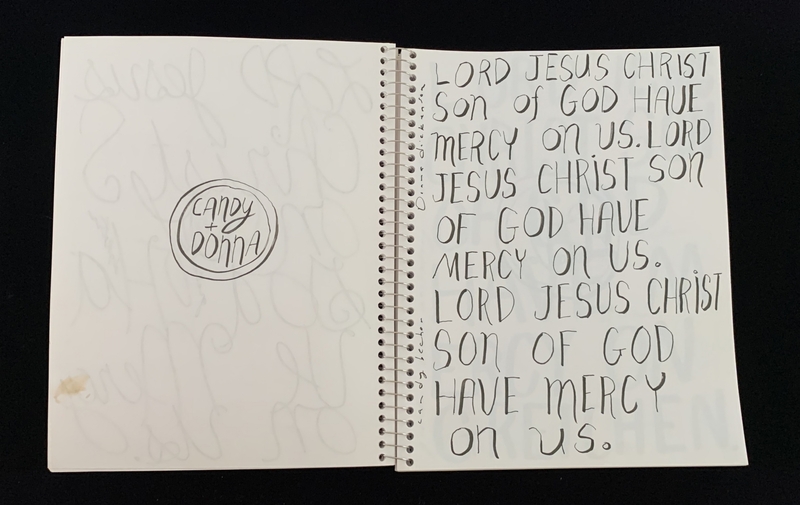 CANDY
+
DONNA
LORD JESUS CHRIST
SON of GOD HAVE
MERCY ON US. LORD
JESUS CHRIST SON
OF GOD HAVE
MERCY ON US.
LORD JESUS CHRIST
SON OF GOD
HAVE MERCY
ON US.